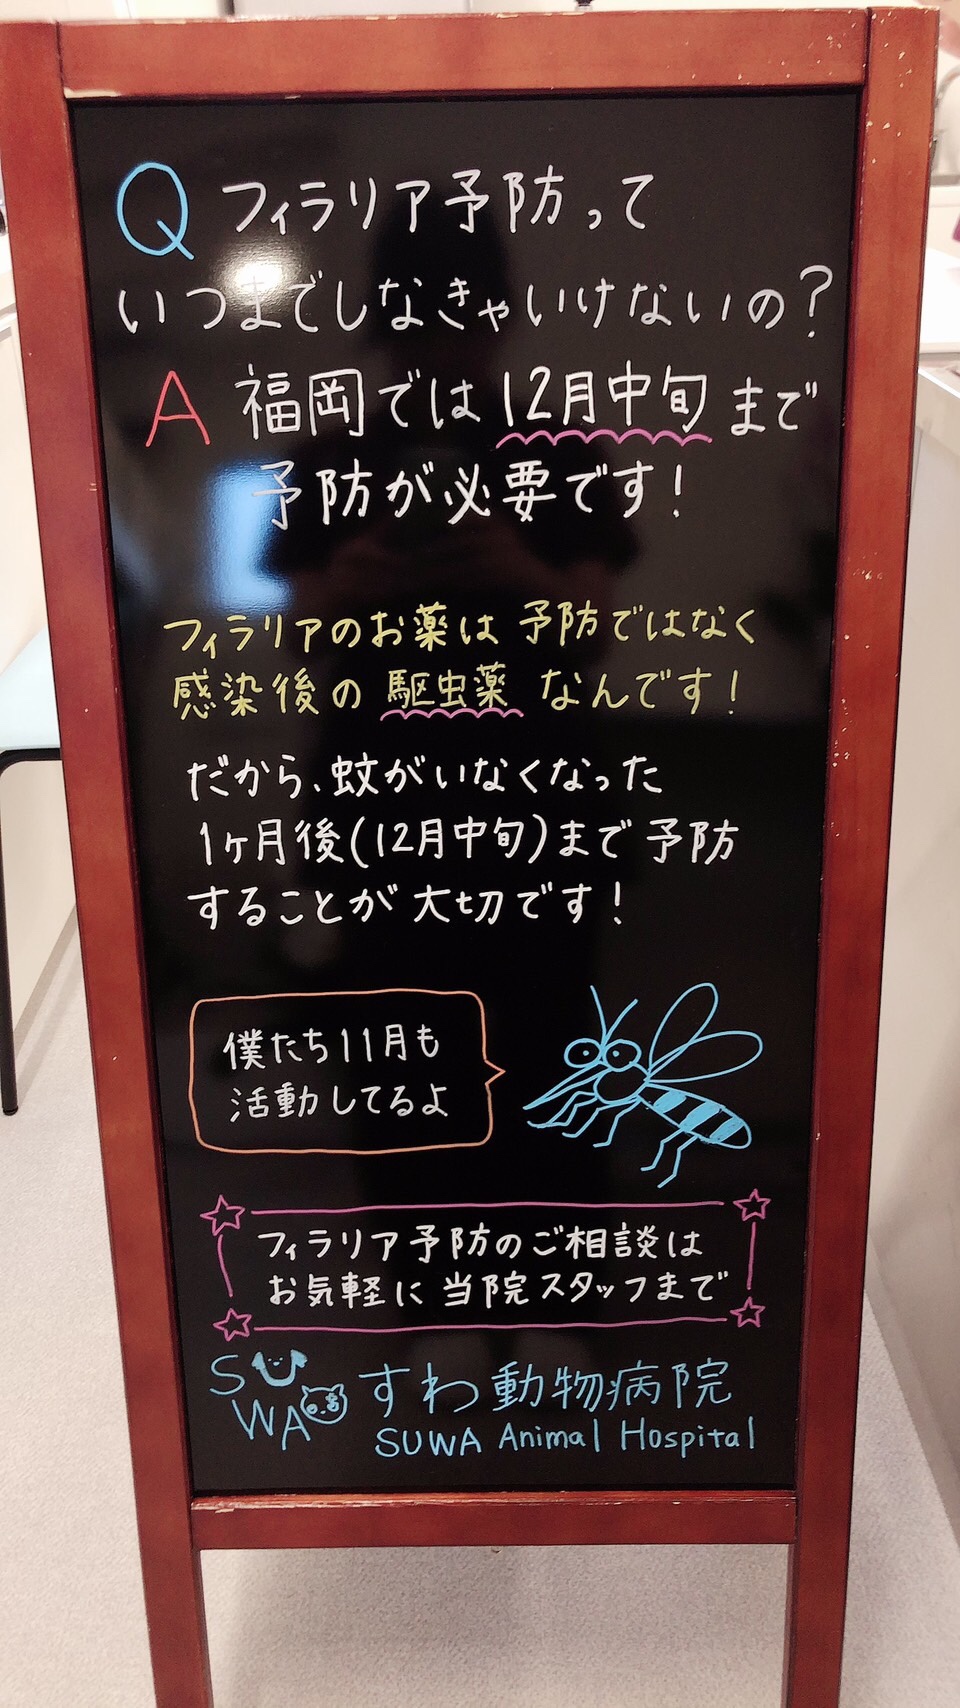 Q フィラリア予防って
いつまでしなきゃいけないの?
A 福岡では12月中旬まで
予防が必要です!
フィラリアのお薬は予防ではなく
感染後の駆虫薬なんです!
だから、蚊がいなくなった
1ヶ月後(12月中旬)まで予防
することが大切です!
僕たち11月も
活動してるよ
フィラリア予防のご相談は
お気軽に当院スタッフまで
SUWA すわ動物病院
SUWA Animal Hospital